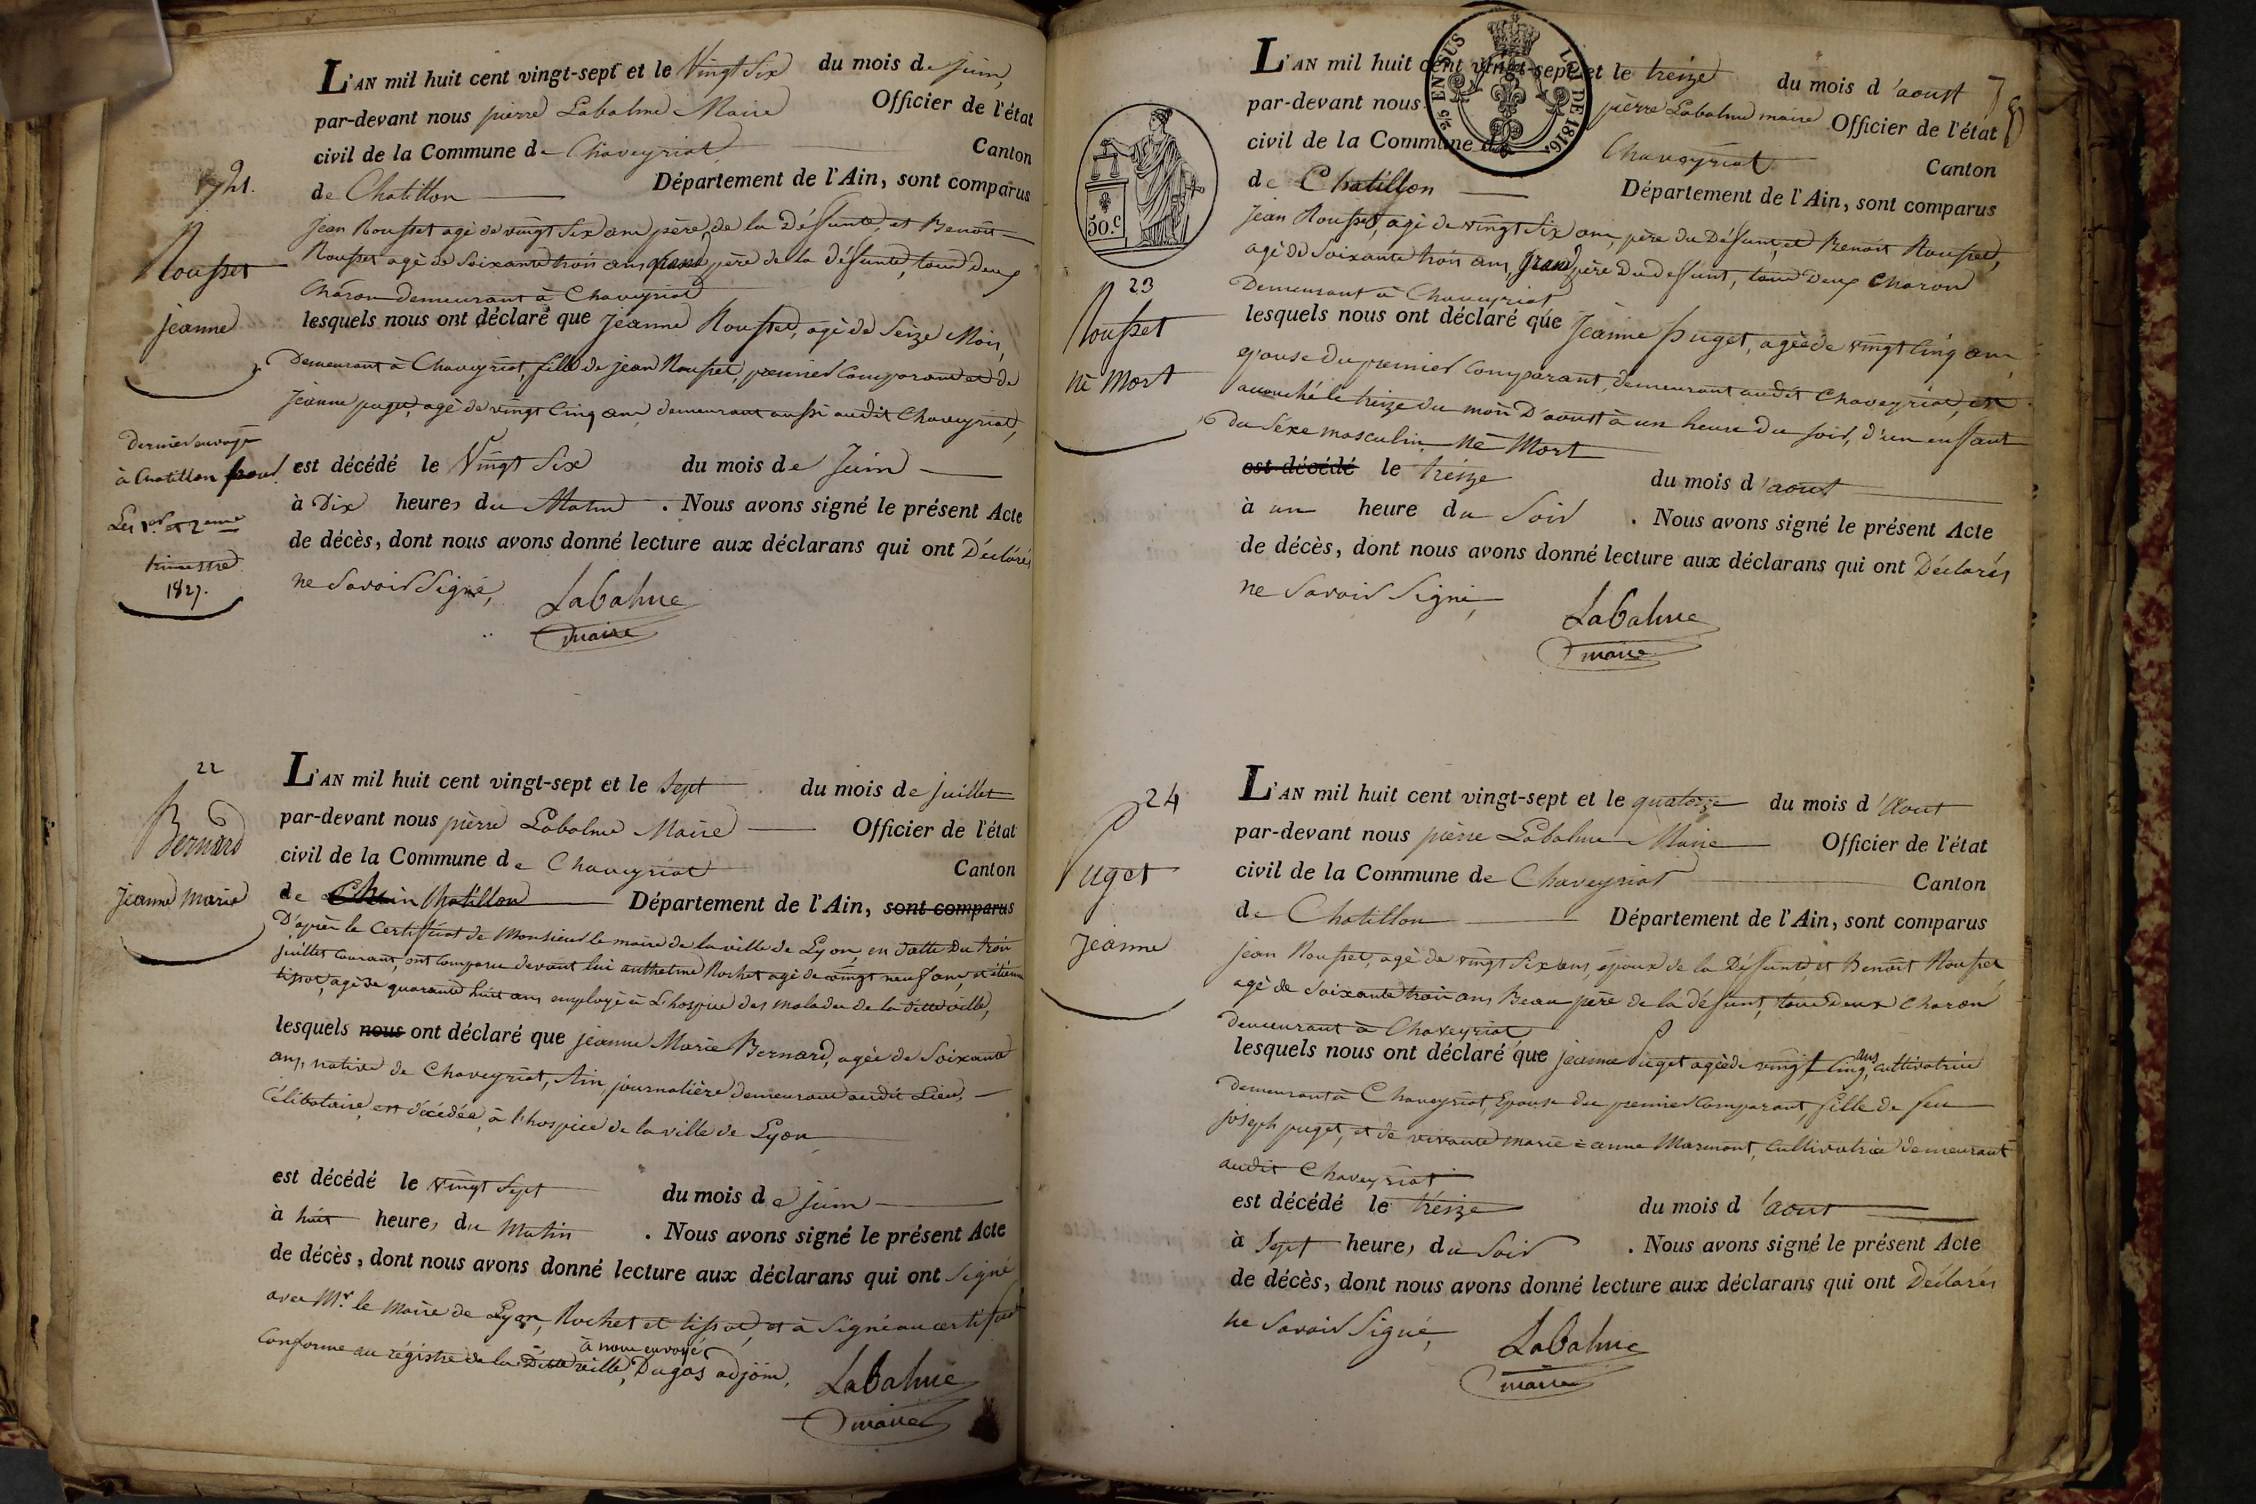 L'AN mil huit cent vingt-sept et le Vingt Six du mois de Juin,
par-devant nous pierre Labalme Maire Officier de l'état
civil de la Commune de Chaveyriat Canton
de Chatillon Département de l'Ain, sont comparus
jean Rousset agé de vingt Six ans père de la Défunte, et Benoit
Rousset agé de Soixante trois ans grand père de la défunte, tous deux
charon demeurant à Chaveyriat
lesquels nous ont déclaré que jeanne Rousset, agé de Seize Mois,
Demeurant à Chaveyriat, fille de jean Rousset, premier Comparant et de
jeanne puget, agé de vingt Cinq ans, demeurant aussi audit Chaveyriat,
est décédé le Vingt Six du mois de Juin
à Dix heures du Matin . Nous avons signé le présent Acte
de décès, dont nous avons donné lecture aux déclarans qui ont Déclarés
ne Savoir Signé,
Labalme
maire
21.
Rousset
jeanne
dernier envoyé
à Chatillon pour
Les 1er et 2eme
trimestre
1827.
22
Bernard
jeanne marie
L'AN mil huit cent vingt-sept et le Sept du mois de juillet
par-devant nous pierre Labalme Maire Officier de l'état
civil de la Commune de Chaveyriat Canton
de Chatillon Département de l'Ain, sont comparus
D'après le Certificat de Monsieur le maire de la ville de Lyon, en datte du trois
juillet Courant, ont Comparu devant lui anthelme Rochet agé de vingt neuf ans, et étienne
tissot, agé de quarante huit ans, employé à L'hospice des malades de la ditte ville,
lesquels nous ont déclaré que jeanne Marie Bernard, agée de Soixante
ans, native de Chaveyriat, Ain, journalière demeurant audit Lieu,
Célibataire, est décédée, à l'hospice de la ville de Lyon
est décédé le vingt Sept du mois de juin
à huit heures du Matin . Nous avons signé le présent Acte
de décès, dont nous avons donné lecture aux déclarans qui ont Signé
avec Mr. le Maire de Lyon, Rochet et tissot, et à Signé au certificat
à nous envoyé
Conforme au régistre de la Ditte ville, Dugas adjoin.
Labalme
maire
L'AN mil huit cent vingt-sept et le treize du mois d'aoust
par-devant nous pierre Labalme maire Officier de l'état
civil de la Commune de Chaveyriat Canton
de Chatillon Département de l'Ain, sont comparus
2/5 EN SUS LOI DE 1816.
50.c
jean Rousset, agé de vingt Six ans, père du Défunt, et Benoit Rousset,
agé de Soixante trois ans, grand père du defunt, tous deux Charon
Demeurant à Chaveyriat
lesquels nous ont déclaré que jeanne puget, agée de vingt Cinq ans
epouse du premier Comparant, demeurant audit Chaveyriat, est
accouché le treize du mois D'aoust à un heure du soir, d'un enfant
du Séxe masculin Né Mort
est décédé le treize du mois d'aout
à un heure du Soir . Nous avons signé le présent Acte
de décès, dont nous avons donné lecture aux déclarans qui ont Déclarés
ne Savoir Signé,
Labalme
maire
23
Rousset
né Mort
24
Puget
jeanne
L'AN mil huit cent vingt-sept et le quatorze du mois d'Aout
par-devant nous pierre Labalme Maire Officier de l'état
civil de la Commune de Chaveyriat Canton
de Chatillon Département de l'Ain, sont comparus
jean Rousset, agé de vingt Six ans, époux de la Défunte, et Benoit Rousset
agé de Soixante trois ans Beau père de la défunt, tous deux Charon
demeurant à Chaveyriat
lesquels nous ont déclaré que jeanne Puget agée de vingt Cinq ans, cultivatrice
demeurant à Chaveyriat, Epouse du premier Comparant, fille de feu
joseph puget, et de vivante marie=anne Marmont, Cultivatrice demeurant
audit Chaveyriat
est décédé le treize du mois d'aout
à Sept heures du Soir . Nous avons signé le présent Acte
de décès, dont nous avons donné lecture aux déclarans qui ont Déclarés
ne Savoir Signé,
Labalme
maire